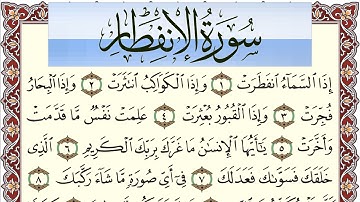 سُورَةُ الإِنفِطَارِ
إِذَا ٱلسَّمَآءُ ٱنفَطَرَتْ ١ وَإِذَا ٱلْكَوَاكِبُ ٱنتَثَرَتْ ٢ وَإِذَا ٱلْبِحَارُ
فُجِّرَتْ ٣ وَإِذَا ٱلْقُبُورُ بُعْثِرَتْ ٤ عَلِمَتْ نَفْسٌ مَّا قَدَّمَتْ
وَأَخَّرَتْ ٥ يَٰٓأَيُّهَا ٱلْإِنسَٰنُ مَا غَرَّكَ بِرَبِّكَ ٱلْكَرِيمِ ٦ ٱلَّذِى
خَلَقَكَ فَسَوَّىٰكَ فَعَدَلَكَ ٧ فِىٓ أَىِّ صُورَةٍ مَّا شَآءَ رَكَّبَكَ ٨